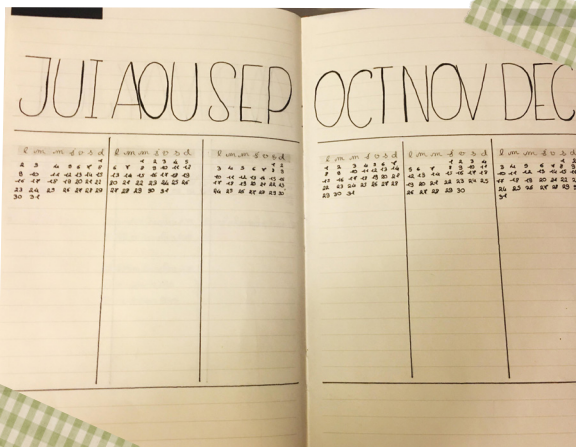 JUI AOU SEP
l m m j v s d
1
2 3 4 5 6 7 8
9 10 11 12 13 14 15
16 17 18 19 20 21 22
23 24 25 26 27 28 29
30 31
l m m j v s d
1 2 3 4 5
6 7 8 9 10 11 12
13 14 15 16 17 18 19
20 21 22 23 24 25 26
27 28 29 30 31
l m m j v s d
1 2
3 4 5 6 7 8 9
10 11 12 13 14 15 16
17 18 19 20 21 22 23
24 25 26 27 28 29 30
OCT NOV DEC
l m m j v s d
1 2 3 4 5 6 7
8 9 10 11 12 13 14
15 16 17 18 19 20 21
22 23 24 25 26 27 28
29 30 31
l m m j v s d
1 2 3 4
5 6 7 8 9 10 11
12 13 14 15 16 17 18
19 20 21 22 23 24 25
26 27 28 29 30
l m m j v s d
1
3 4 5 6 7 8
10 11 12 13 14 15
17 18 19 20 21 22
24 25 26 27 28 29
31